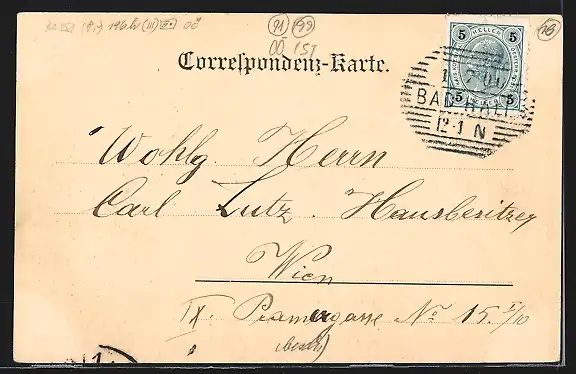 91
99
16
OÖ
151
Correspondenz-Karte.
5 HELLER 5
5 5
BAD HALL
12-1 N
Wohlg. Herrn
Carl Lutz. Hausbesitzer
Wien
IX. Pramergasse No 15. I/10